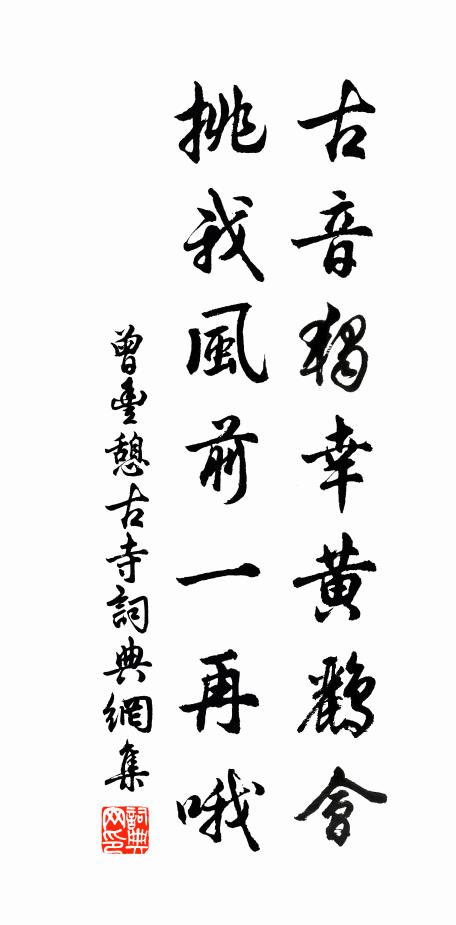 古音獨幸黃鸝會
挑我風前一再哦
曾豐憩古寺詞典網集
詞典网印